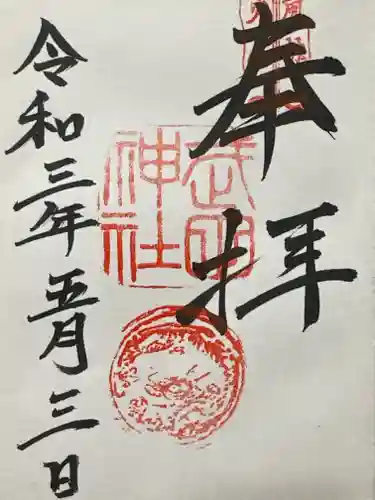 奉拝
武
神社
令和三年五月三日